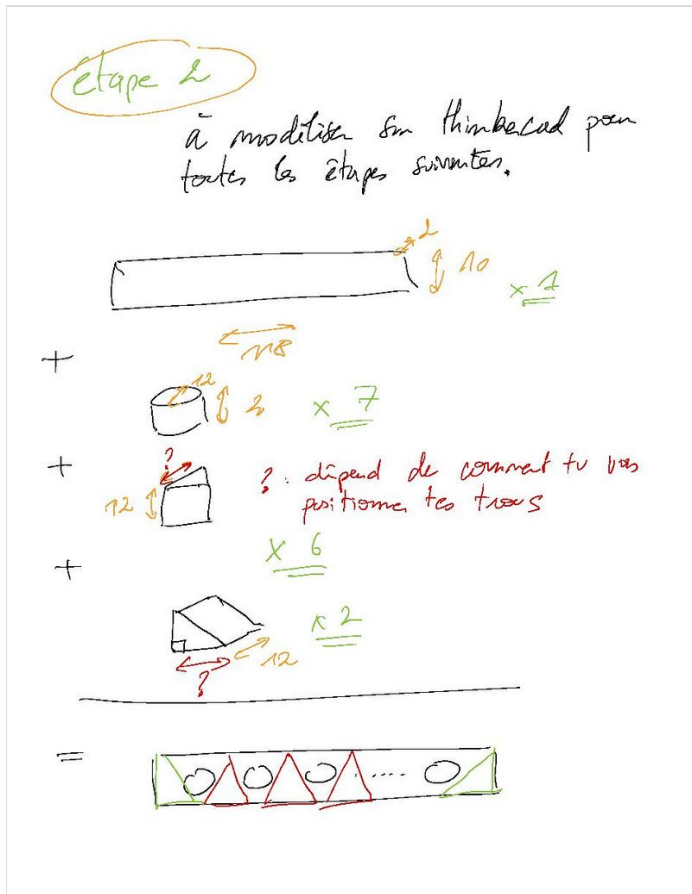 étape 2
à modéliser sur thinkercad pour
toutes les étapes suivantes.
2
10
x 1
118
+
12
2
x 7
+
?
12
? : dépend de comment tu vas
positionner tes trous
x 6
+
x 2
12
?
=
.....